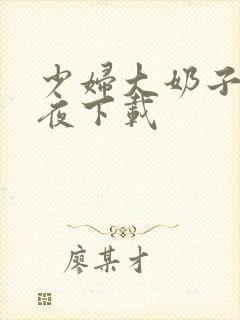 少婦大奶子
夜下載
廖某才